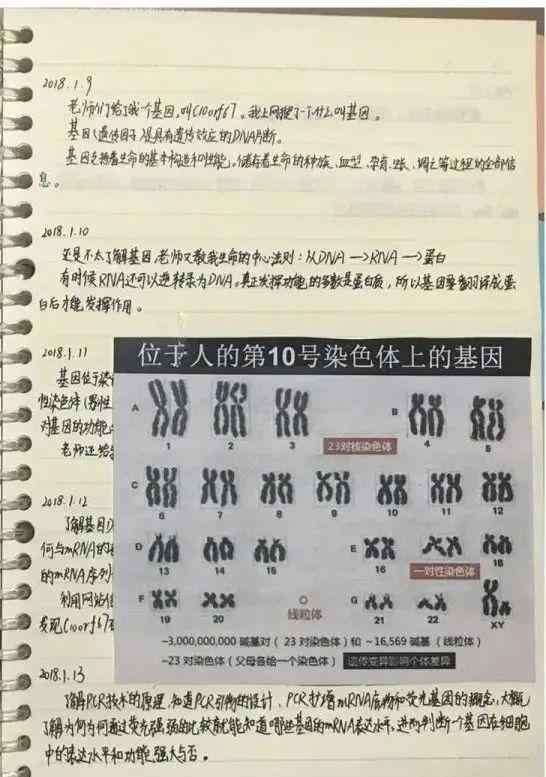 2018.1.9
老师们给了我个基因,叫C10orf67。我上网搜了一下什么叫基因。
基因(遗传因子)是具有遗传效应的DNA片断。
基因支持着生命的基本构造和性能。储存着生命的种族、血型、孕育、生长、凋亡等过程的全部信
息。
2018.1.10
还是不太了解基因,老师又教我生命的中心法则:从DNA→RNA→蛋白
有时候RNA还可以逆转录为DNA。真正发挥功能的多数是蛋白质,所以基因要翻译成蛋
白后才能发挥作用。
2018.1.11
基因位于染
性染色体(男性
对基因的功能
老师还给
2018.1.12
了解基因
何与mRNA的
的mRNA序列
利用网站
发现C10orf67
位于人的第10号染色体上的基因
A 1 2 3 B 4 5
23对核染色体
C 6 7 8 9 10 11 12
D 13 14 15 E 16 18
一对性染色体
F 19 20 线粒体 G 21 22 XY
~3,000,000,000 碱基对(23对染色体)和 ~16,569 碱基(线粒体)
~23 对染色体(父母各给一个染色体) 遗传变异影响个体差异
2018.1.13
了解PCR技术的原理,知道PCR引物的设计、PCR扩增mRNA底物和荧光基因的概念,大概
了解为何为何通过荧光强弱的比较就能知道哪些基因的mRNA表达水平,进而判断一个基因在细胞
中的表达水平和功能强大与否。